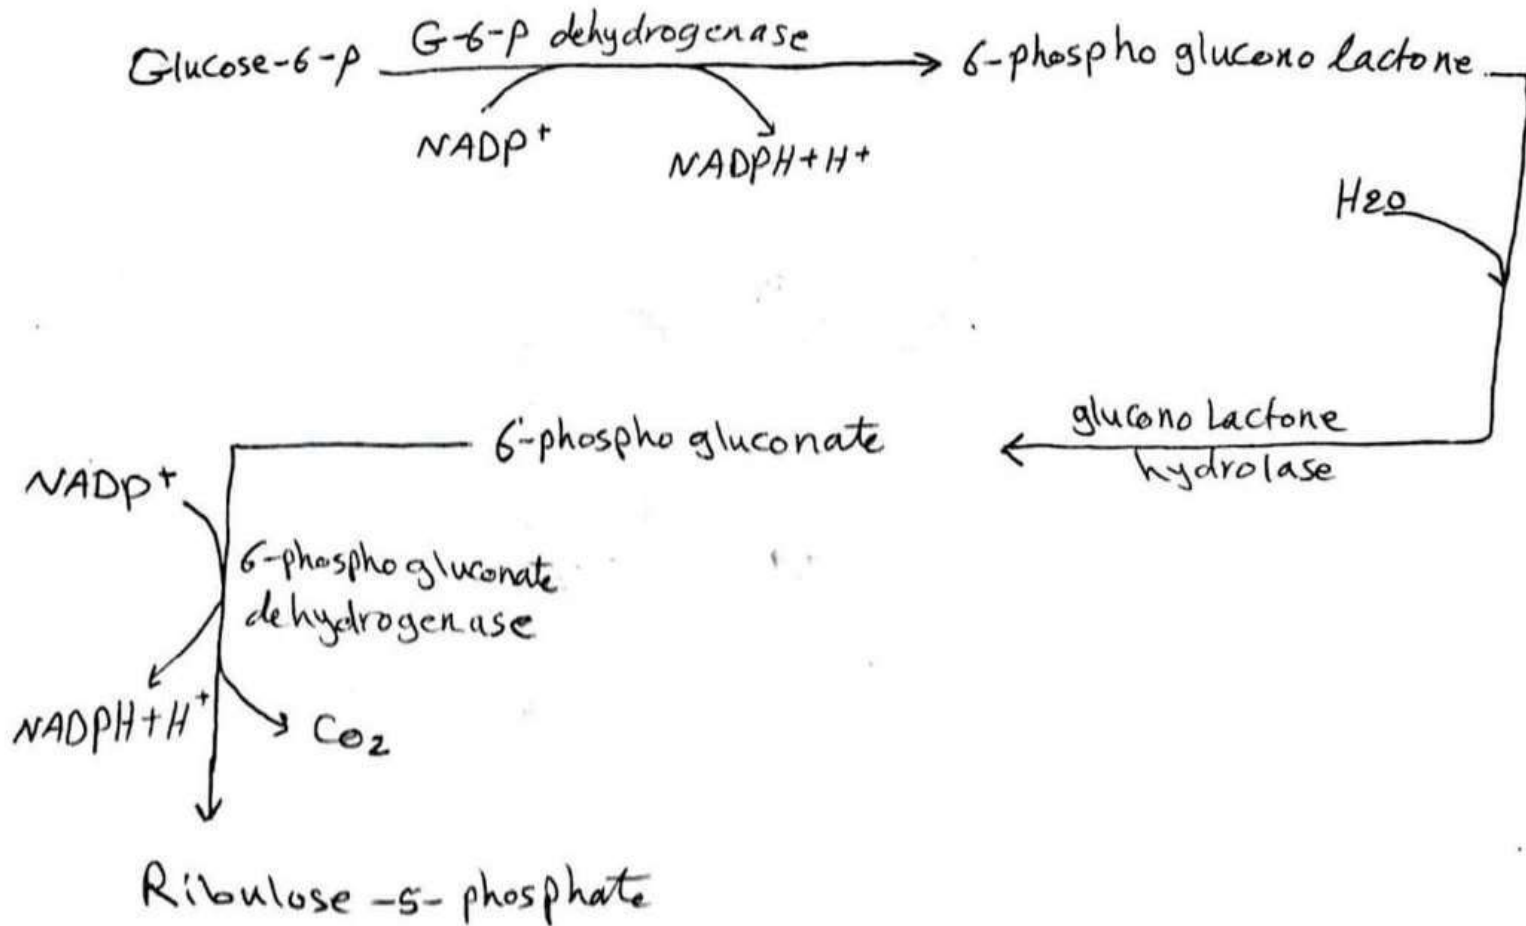 Glucose-6-P G-6-P dehydrogenase 6-phospho glucono lactone
NADP+ NADPH+H+
H2O
6-phospho gluconate glucono Lactone
hydrolase
NADP+
6-phospho gluconate
dehydrogenase
NADPH+H+ CO2
Ribulose -5- phosphate